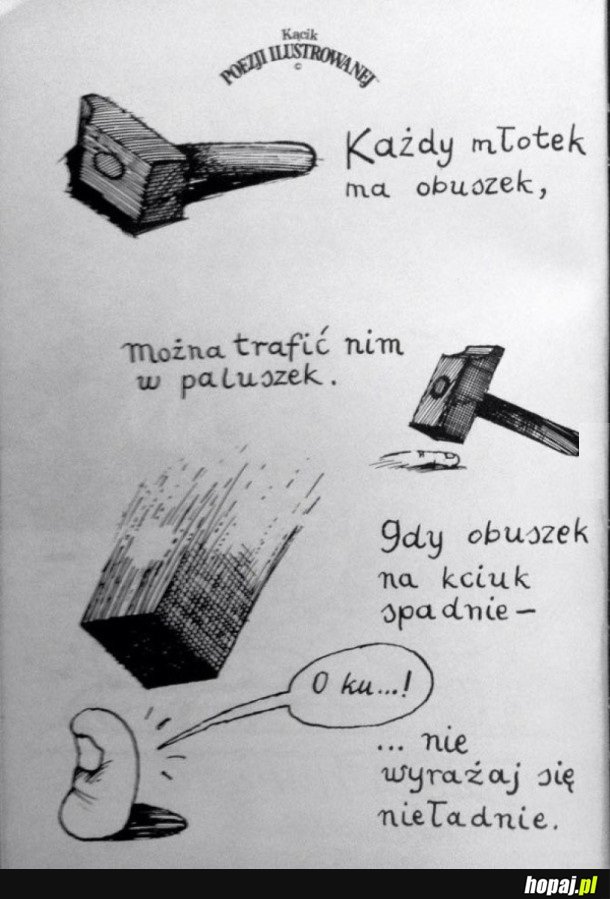 Kącik
POEZJI ILUSTROWANEJ
©
Każdy młotek
ma obuszek,
można trafić nim
w paluszek.
gdy obuszek
na kciuk
spadnie—
O ku...!
... nie
wyrażaj się
nieładnie.
hopaj.pl